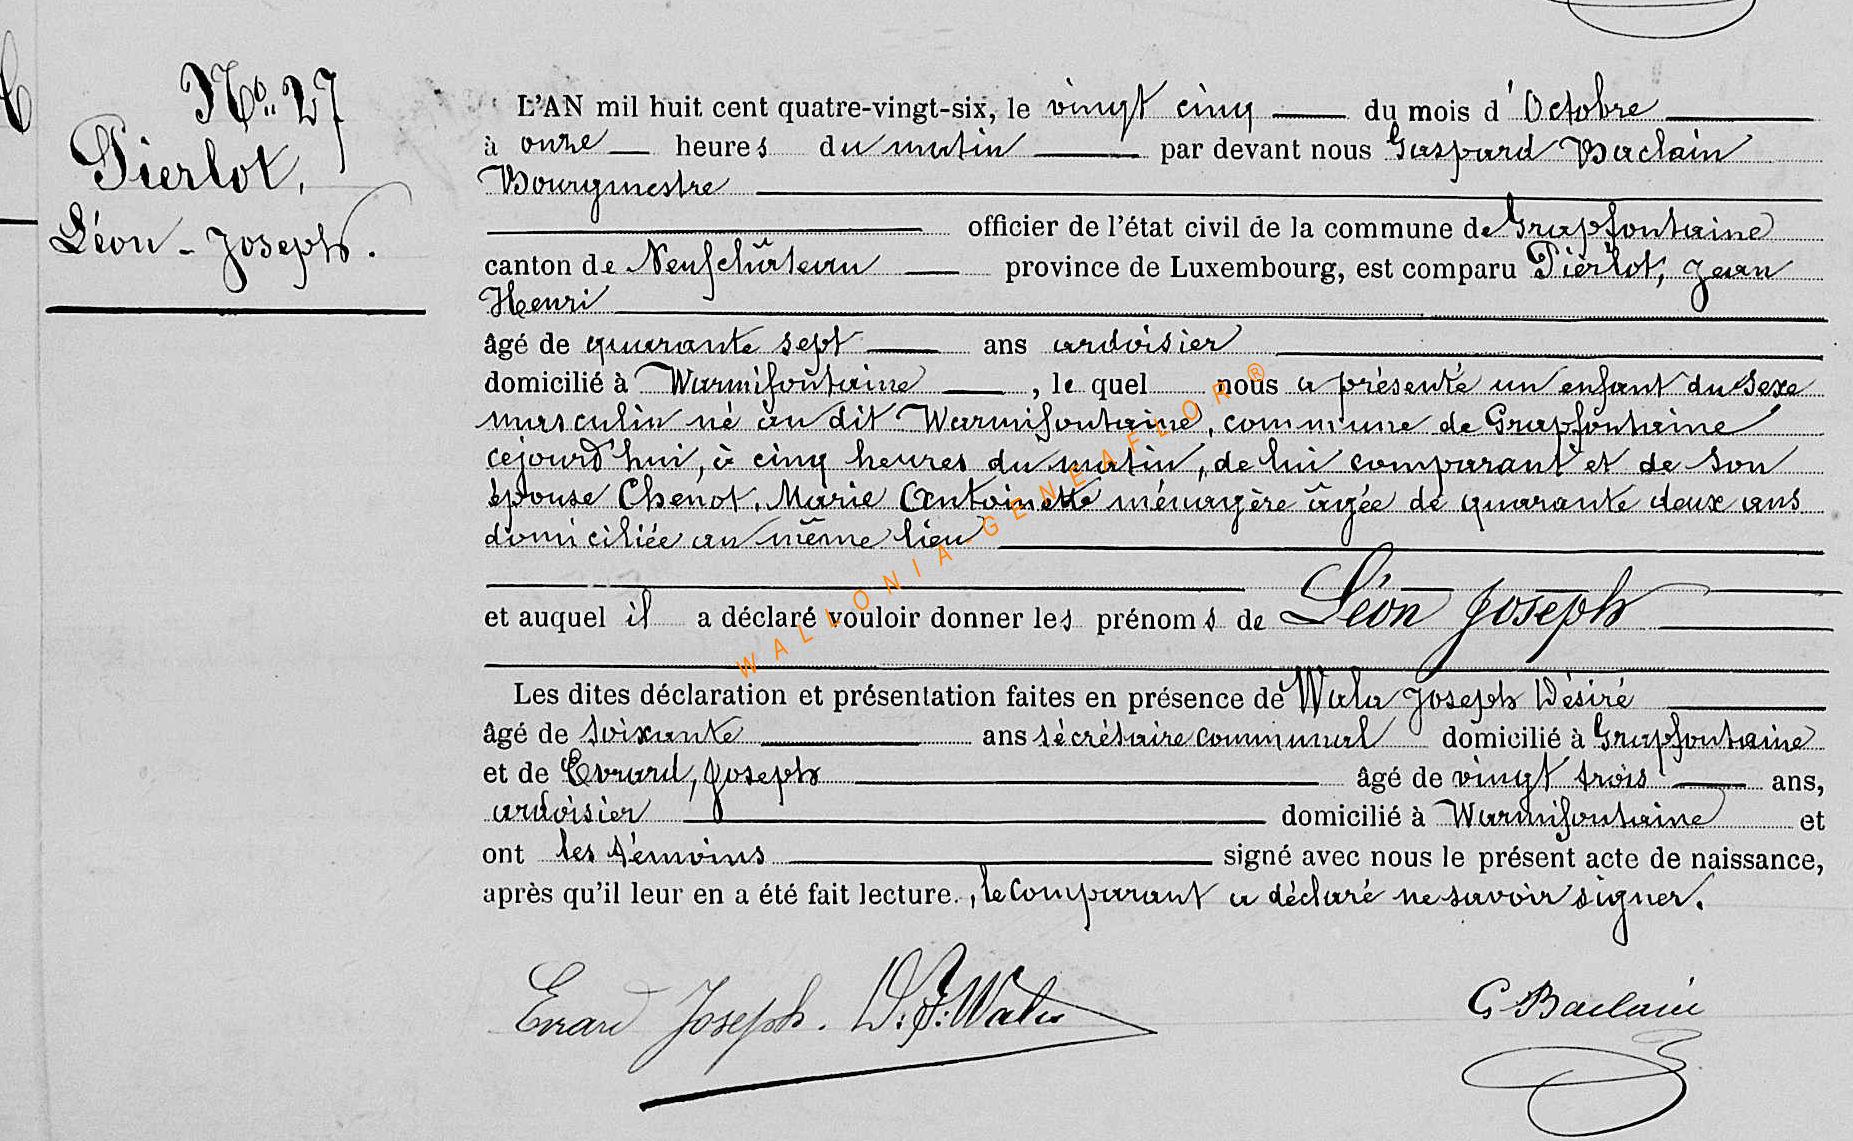 No. 27
Pierlot,
Léon - Joseph.
L'AN mil huit cent quatre-vingt-six, le vingt cinq du mois d' Octobre
à onze heures du matin par devant nous Gaspard Baclain
Bourgmestre
officier de l'état civil de la commune de Grapfontaine
canton de Neufchâteau province de Luxembourg, est comparu Pierlot, Jean
Henri
âgé de quarante sept ans ardoisier
domicilié à Warmifontaine, le quel nous a présenté un enfant du sexe
masculin né au dit Warmifontaine, commune de Grapfontaine
cejourd'hui, à cinq heures du matin, de lui comparant et de son
épouse Chenot, Marie Antoinette ménagère âgée de quarante deux ans
domiciliée au même lieu
et auquel il a déclaré vouloir donner les prénoms de Léon Joseph
Les dites déclaration et présentation faites en présence de Wala Joseph Désiré
âgé de soixante ans sécrétaire communal domicilié à Grapfontaine
et de Evrard, Joseph âgé de vingt trois ans,
ardoisier domicilié à Warmifontaine et
ont les témoins signé avec nous le présent acte de naissance,
après qu'il leur en a été fait lecture., le comparant a déclaré ne savoir signer.
Evrard Joseph. D. J. Wala G Baclain
WALLONIA-GENEAFLOR®